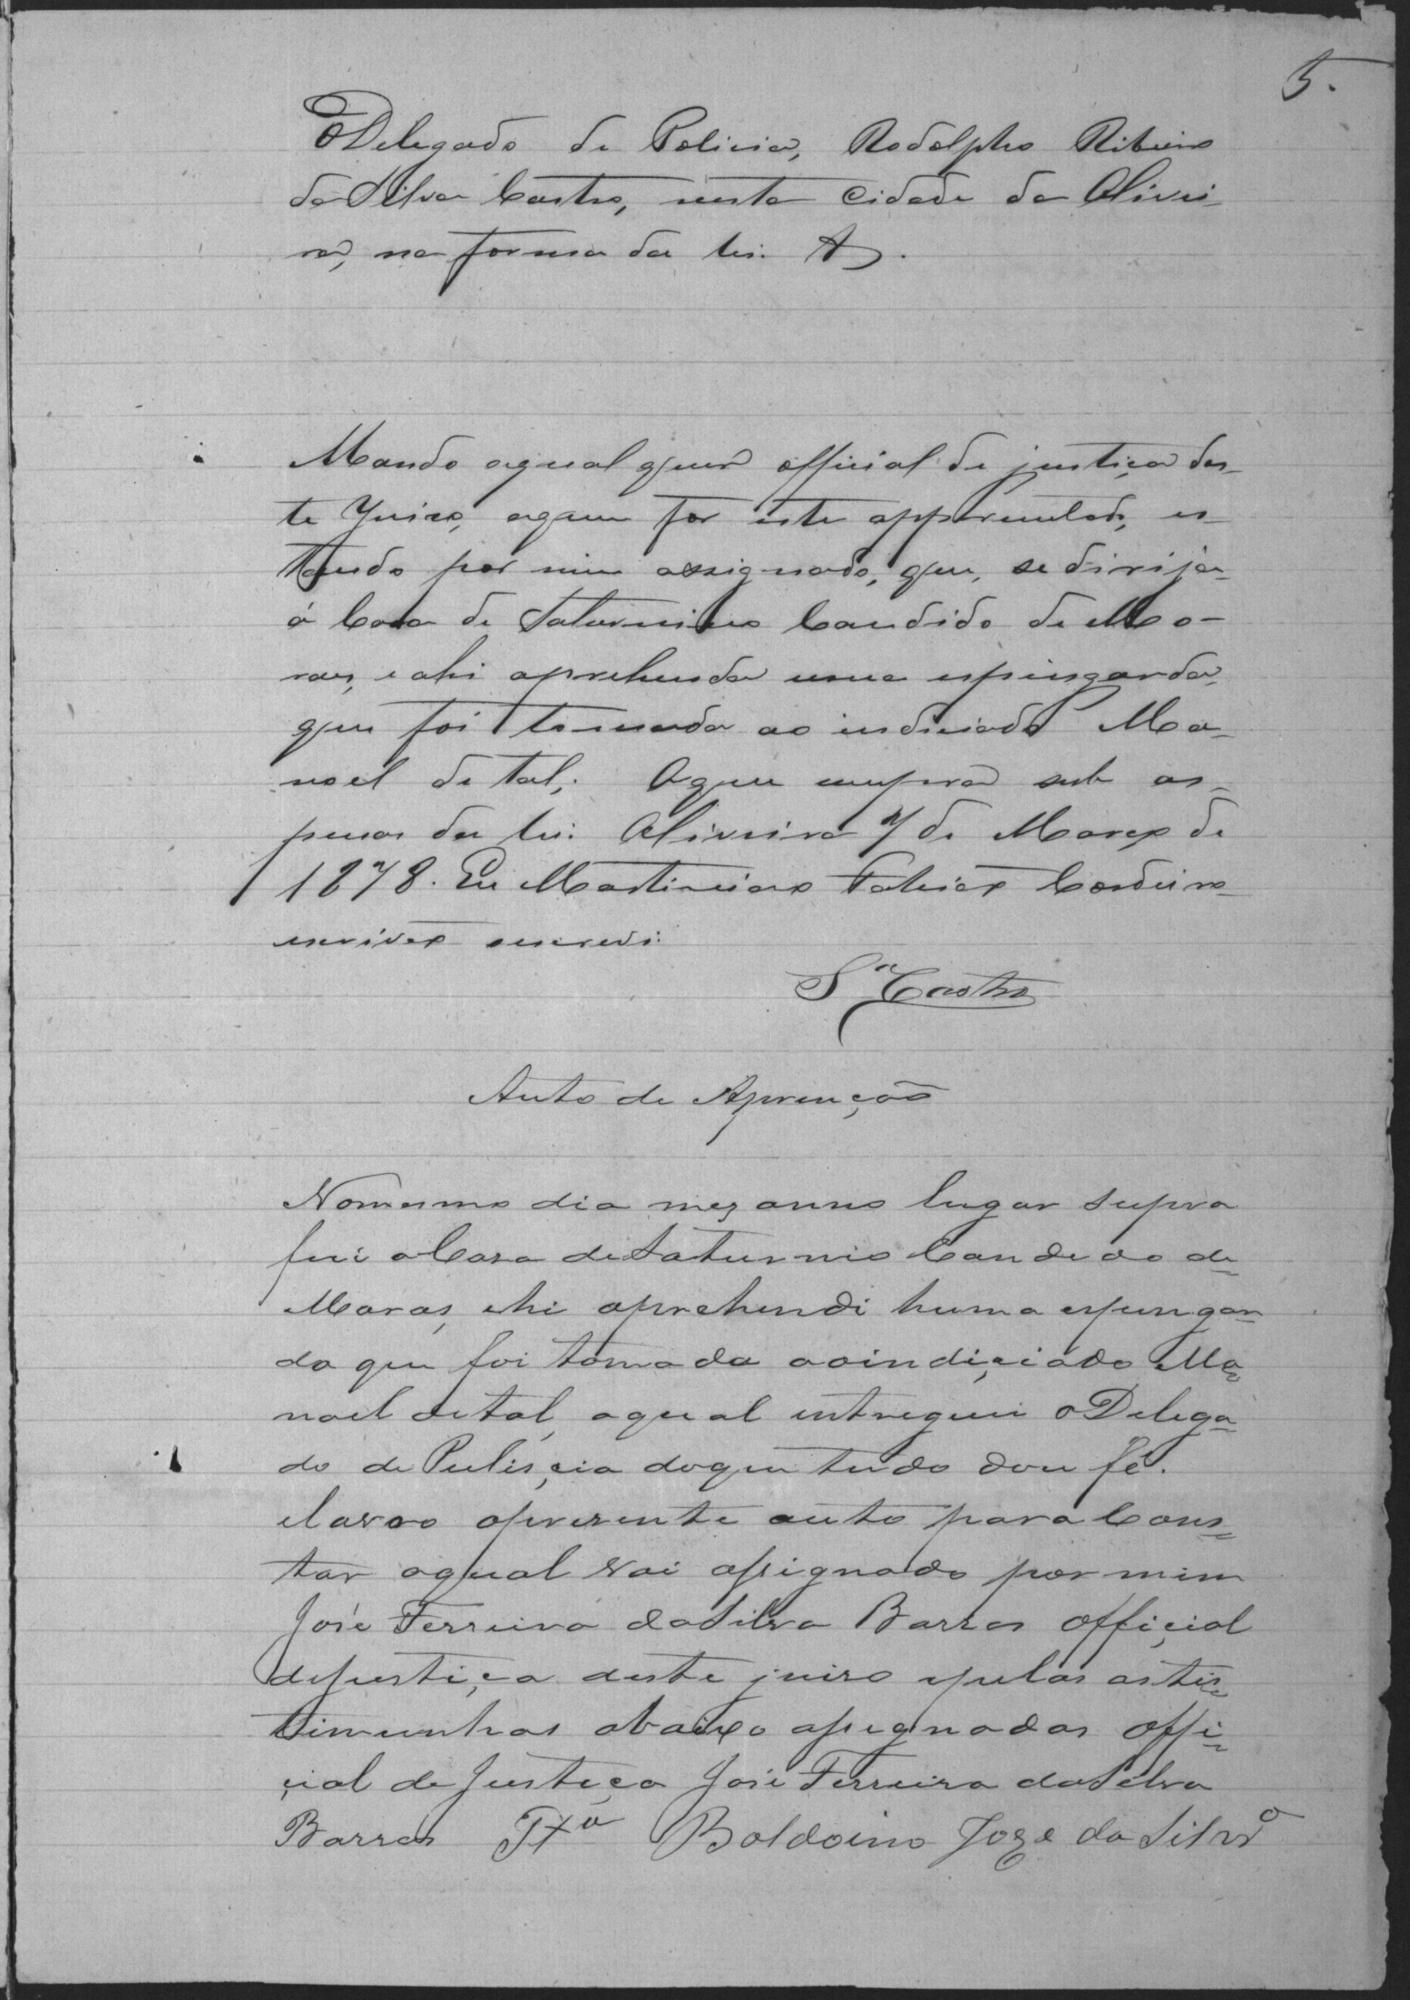 5.
O Delegado de Policia, Rodolpho Ribeiro
da Silva Castro, nesta Cidade da Olivei-
ra, na forma da lei. &.
Mando aqualquer official de justiça des-
te Juizo, aquem for este appresentado, es-
tando por mim assignado, que, se dirija
á Casa de Saturnino Candido de Mo-
raes, e ahi aprehenda uma espingarda,
que foi tomada ao indiciado Ma-
noel de tal; O que cumpra sub as
penas da lei. Oliveira 7 de Março de
1878. Eu Martiniano Cordeiro
escrivão escrevi.
Sª Castro
Auto de Aprenção
Nomesmo dia mez anno lugar supra
fui a Casa de Saturnio Candedo de
Moras, ehi aprehendi huma espungar=
da que foi tomada aoindiçiado Ma=
noel detal, aqual entreguei o Delega=
do de Pulisçia doque tudo dou fé.
elavro opresente auto para Cons=
tar oqual vai assignado por mim
José Ferreira daSilva Barros Offiçial
dejustiça deste juizo epelas astes=
timunhas abaixo assegnadas offi=
çial de Justiça José Ferreira daSelva
Barros Tta Boldoino Joze da Silvª